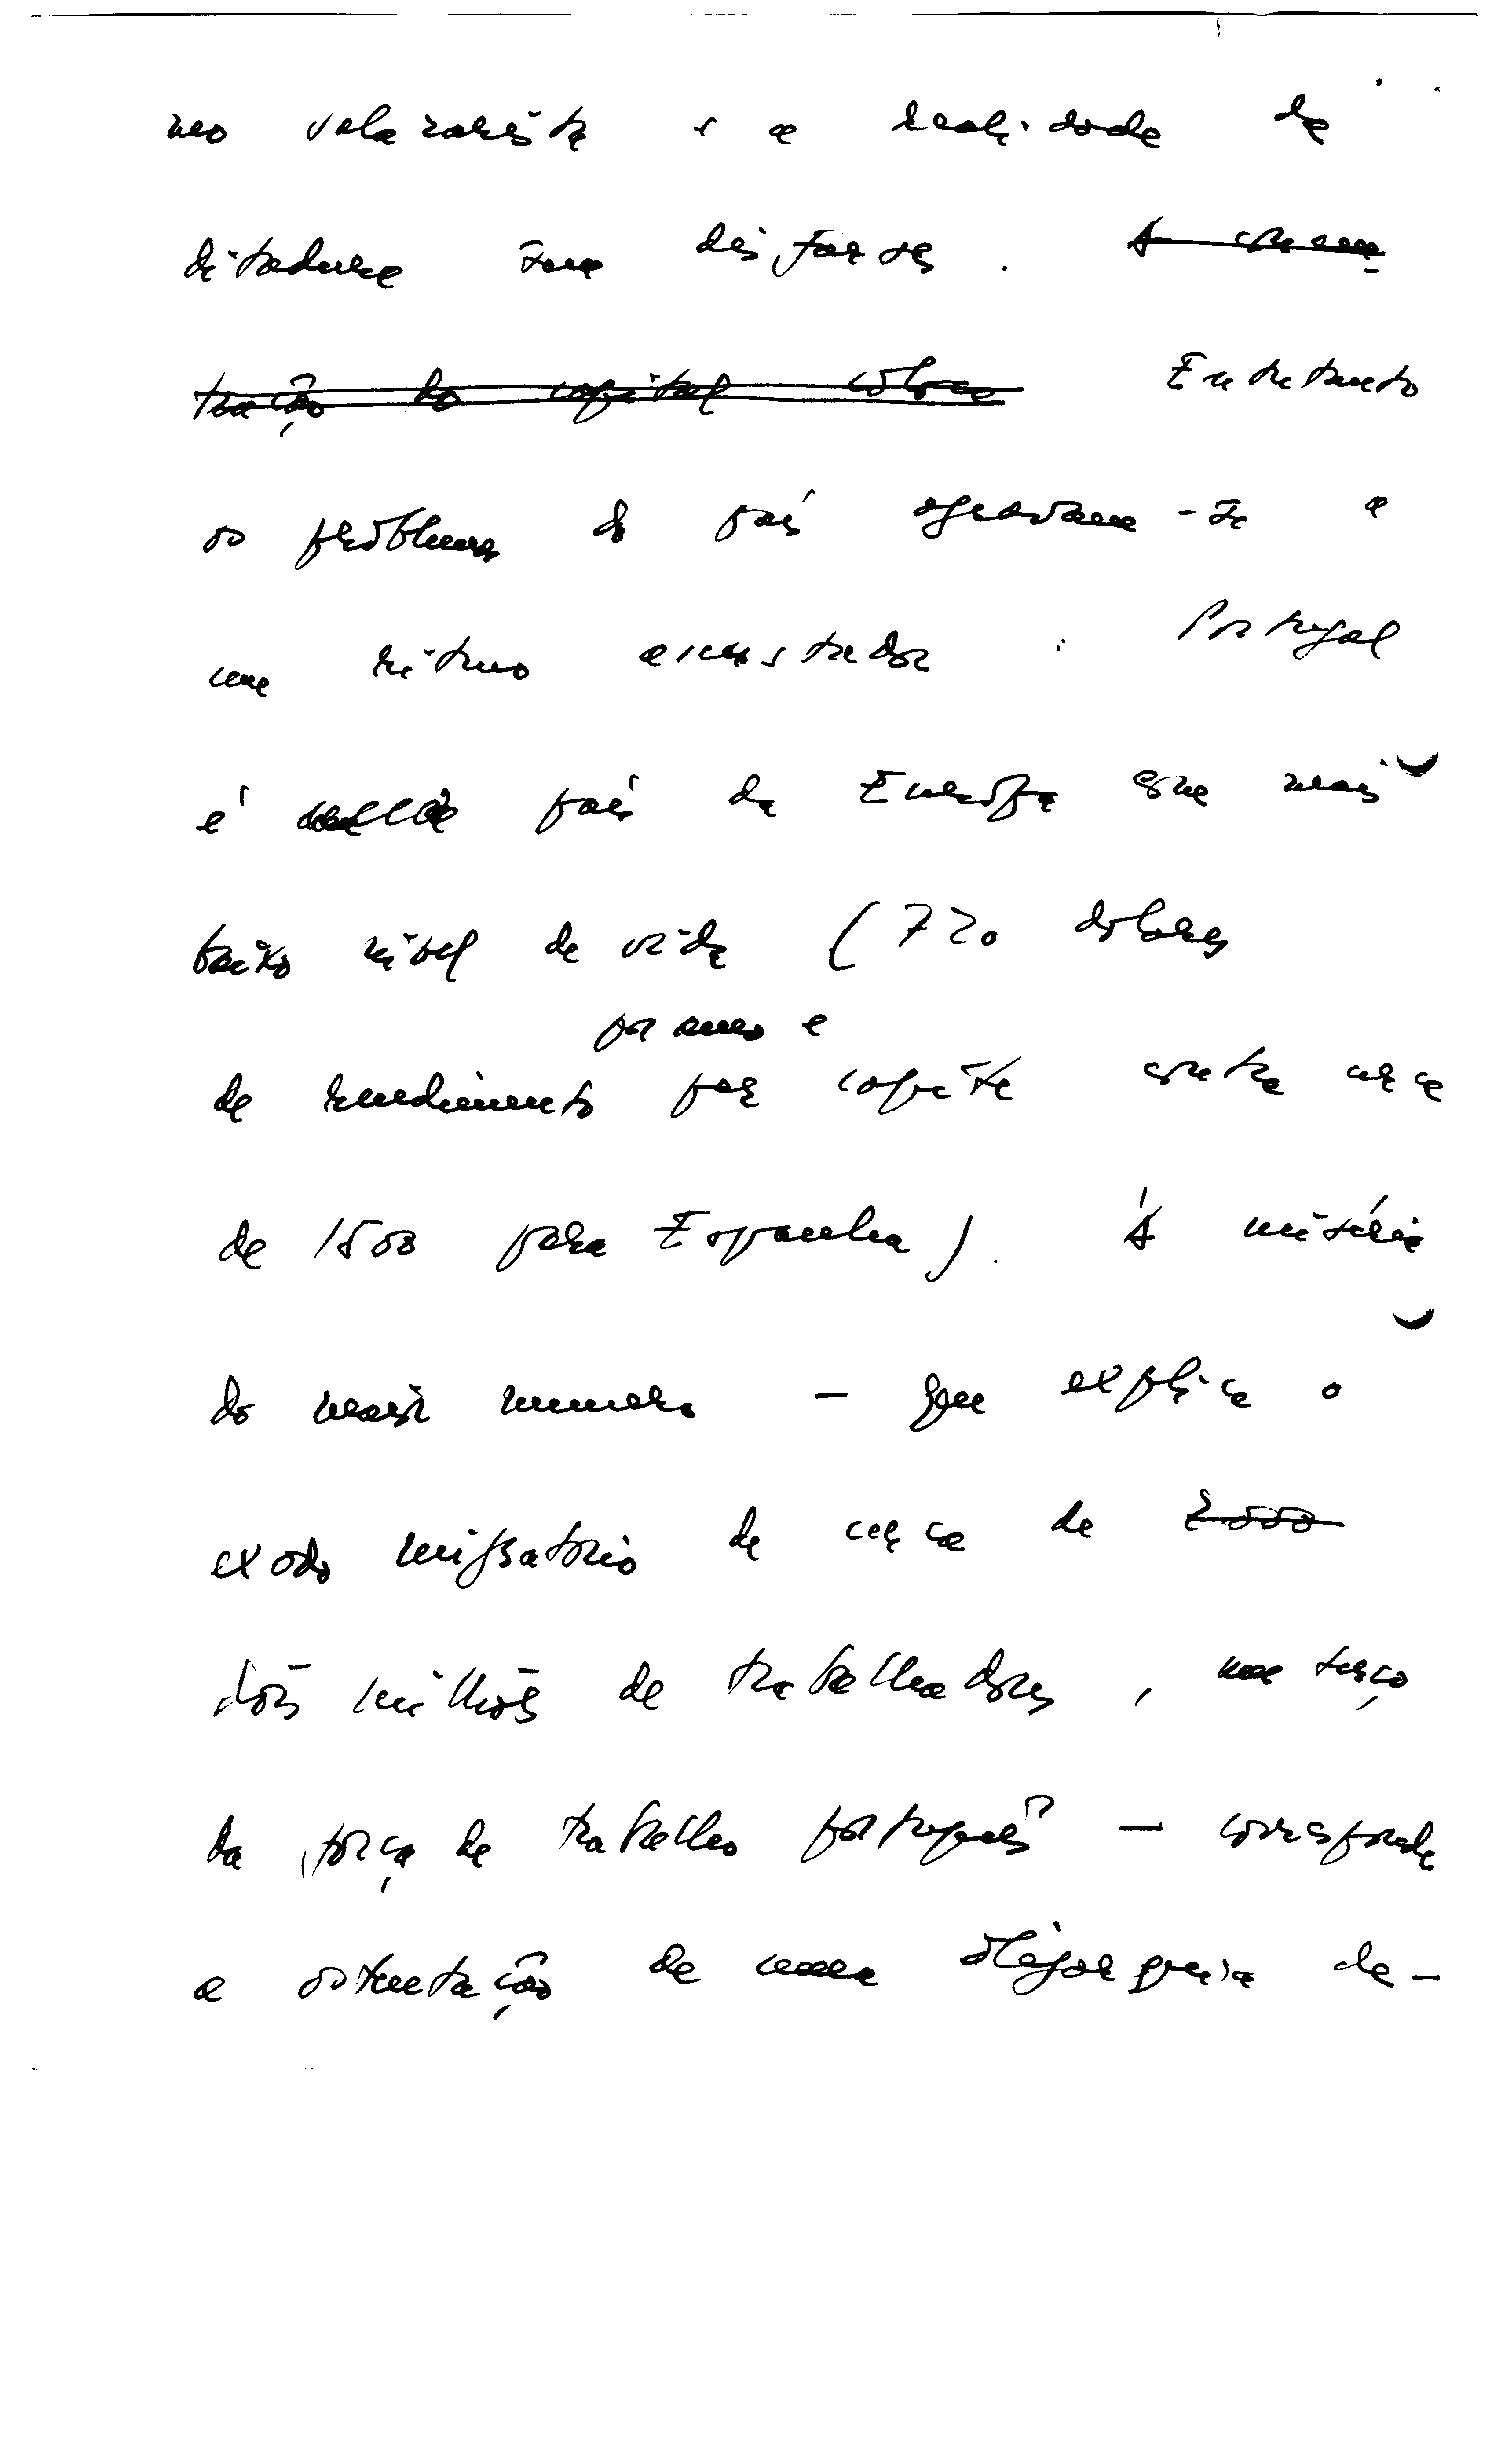 neo salazarista e a realidade da
ditadura sem disfarces. A concen-
tração do capital coloca Entretanto
os problemas do país agravam-se a
um ritmo assustador: Portugal
é o país da Europa com mais
baixo nível de vida (720 dolares
por ano e
de rendimento per capita contra cerca
de 1500 para Espanha). À miséria
do maior numero – que explica o
exodo migratório de cerca de 2.000
dois milhões de trabalhadores, um terço
da força de trabalho português – corresponde
a ostentação de uma oligarquia de-